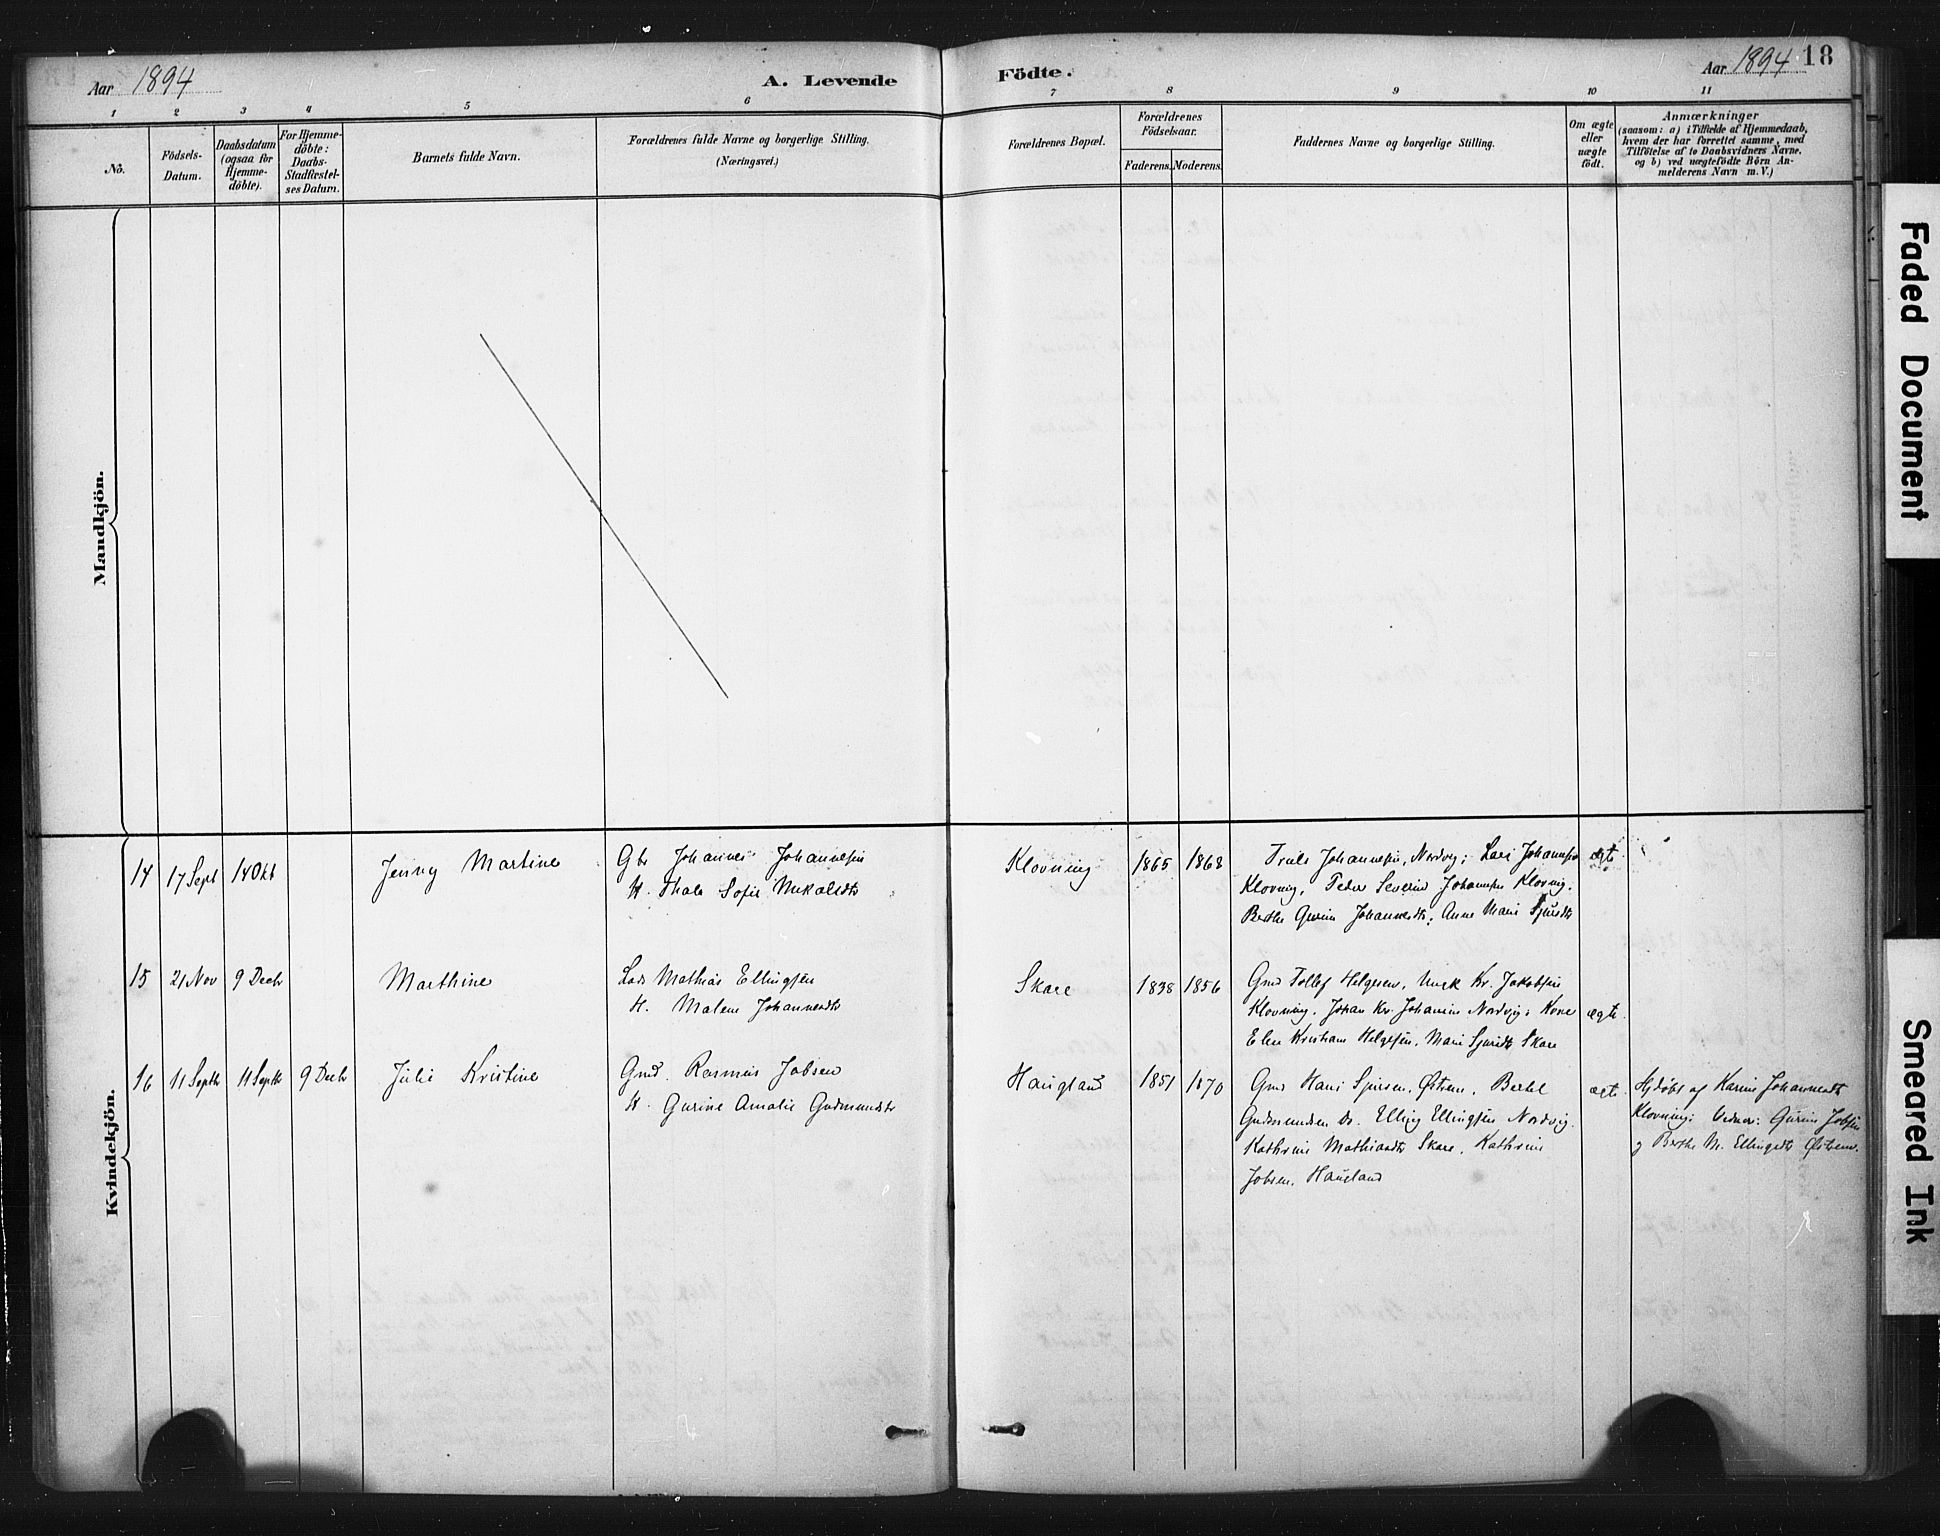 Aar 1894
A. Levende
Födte.
Aar 1894 18
1 2 3 4 5 6 7 8 9 10 11
No.
Födsels-
Datum.
Daabsdatum
(ogsaa för
Hjemme-
döbte).
For Hjemme-
döbte:
Daabs-
Stadfæstel-
ses Datum.
Barnets fulde Navn.
Forældrenes fulde Navne og borgerlige Stilling.
(Næringsvei.)
Forældrenes Bopæl.
Forældrenes
Födselsaar.
Faderens. Moderens.
Faddernes Navne og borgerlige Stilling.
Om ægte
eller
uægte
födt.
Anmærkninger
(saasom: a) i Tilfælde af Hjemmedaab,
hvem der har forrettet samme, med
Tilföielse af to Daabsvidners Navne,
og b) ved uægtefödte Börn An-
melderens Navn m. V.)
Mandkjön.
Kvindekjön.
14 17 Sept 14 Okt Jenny Martine
Gbr Johannes Johannesen
H. Thale Sofie
Klovning 1865 1868
Truls Johannesen, Nordvig; Lars Johannesen
Klovning, Peder Severin Johannesen Klovning,
Berthe Gurine Johannesdtr; Anne Marie
ægte
15 21 Nov 9 Decbr Marthine
Lods Mathias Ellingsen
H. Malene Johannesdtr
Skare 1838 1856
Gmd Tollef Helgesen, Ungk Kr. Jakobsen
Klovning, Johan Kr. Johannesen Nordvig; Kone
Elen Kristiane Helgesen, Marie Sjursdtr Skare
ægte.
16 11 Septbr 11 Septbr 9 Decbr Julie Kristine
Gmd. Rasmus Jobsen
H. Gurine Amalie Gudmundsdtr
Haugland 1851 1870
Gmd Hans Sjursen, Østrem, Bertel
Gudmundsen Do. Elling Ellingsen Nordvig.
Kathrine Mathiasdtr Skare, Kathrine
Jobsen, Haugland
ægte.
Hjdøbt af Karine Johannesdtr
Klovning: Vidner: Gurine Jobsen
og Berthe M. Ellingsdtr Østrem.
Faded Document
Smeared Ink